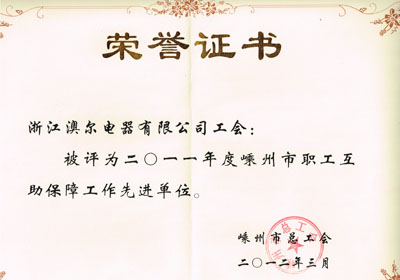 荣誉证书
浙江澳尔电器有限公司工会：
被评为二〇一一年度嵊州市职工互
助保障工作先进单位。
嵊州市总工会
二〇一二年三月